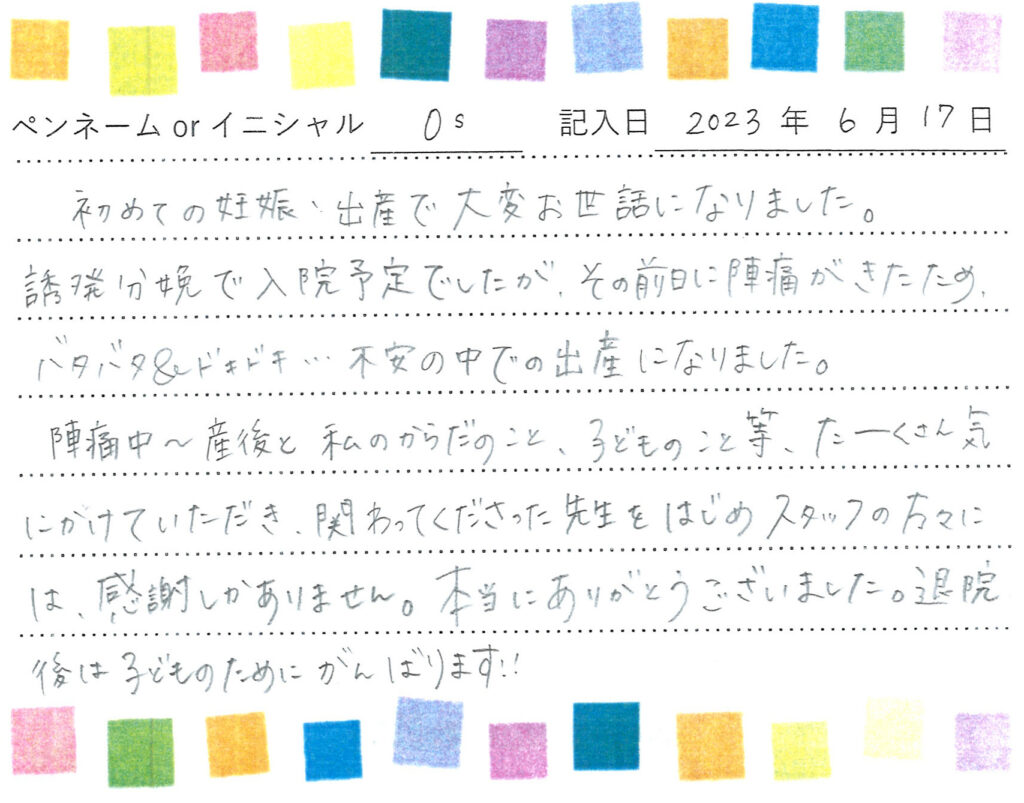 ペンネーム or イニシャル Os 記入日 2023 年 6 月 17 日
初めての妊娠、出産で大変お世話になりました。
誘発分娩で入院予定でしたが、その前日に陣痛がきたため、
バタバタ&ドキドキ…不安の中での出産になりました。
陣痛中～産後と私のからだのこと、子どものこと等、たーくさん気
にかけていただき、関わってくださった先生をはじめスタッフの方々に
は、感謝しかありません。本当にありがとうございました。退院
後は子どものためにがんばります!!